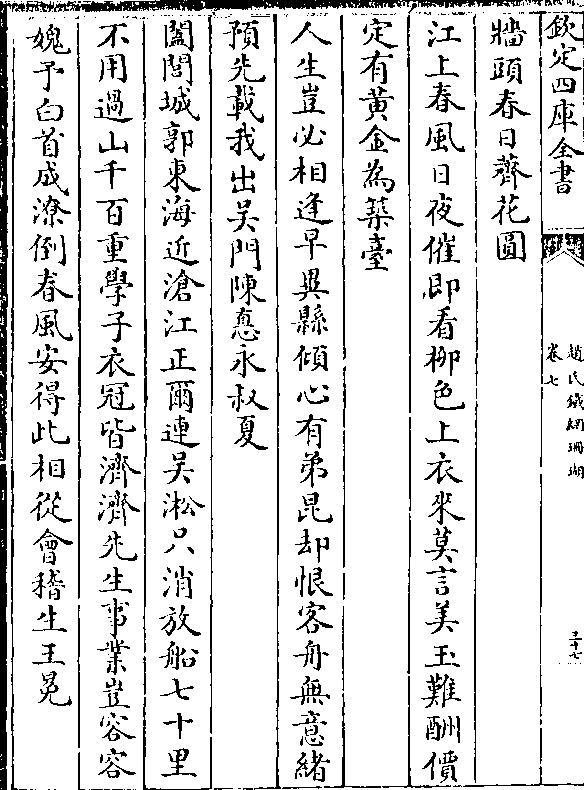 欽定四庫全書
趙氏鐵網珊瑚
卷七
三十七
牆頭春日薺花圓
江上春風日夜催即看柳色上衣來莫言美玉難酬價
定有黄金為築臺
人生豈必相逢早異縣傾心有弟昆却恨客舟無意緒
預先載我出吳門陳惪永叔夏
闔閭城郭東海近滄江正爾連吳淞只消放船七十里
不用過山千百重學子衣冠皆濟濟先生事業豈容容
媿予白首成潦倒春風安得此相從會稽生王冕